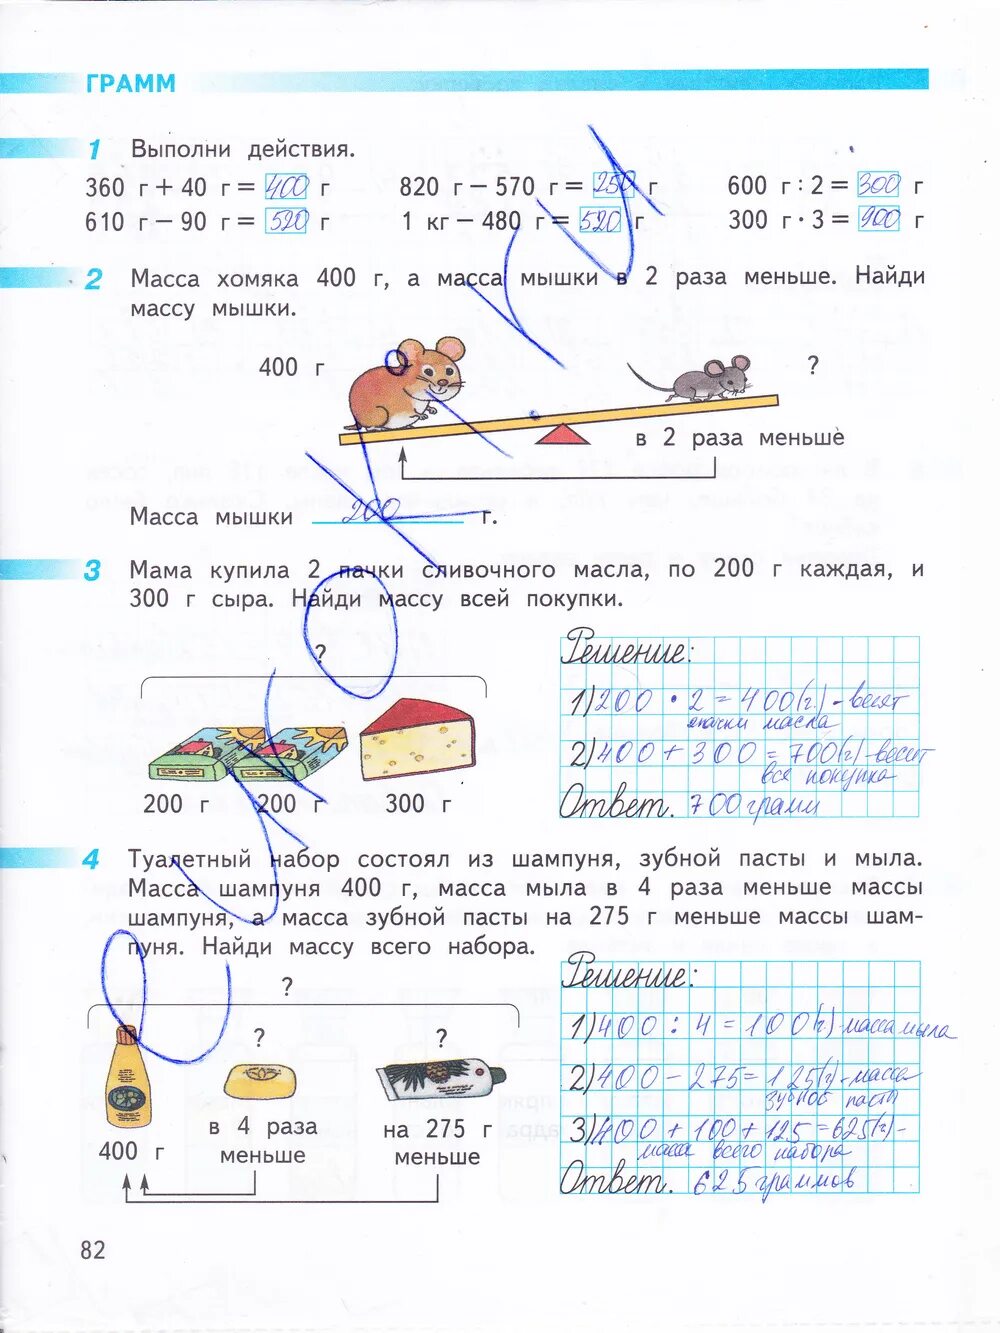 ГРАММ
1 Выполни действия.
360 г + 40 г = 400 г 820 г − 570 г = 250 г 600 г : 2 = 300 г
610 г − 90 г = 520 г 1 кг − 480 г = 520 г 300 г · 3 = 900 г
2 Масса хомяка 400 г, а масса мышки в 2 раза меньше. Найди
массу мышки.
400 г ?
в 2 раза меньше
Масса мышки 200 г.
3 Мама купила 2 пачки сливочного масла, по 200 г каждая, и
300 г сыра. Найди массу всей покупки.
?
200 г 200 г 300 г
Решение:
1) 200 · 2 = 400 (г.) - весят
пачки масла
2) 400 + 300 = 700 (г) - весит
вся покупка
Ответ. 700 грамм
4 Туалетный набор состоял из шампуня, зубной пасты и мыла.
Масса шампуня 400 г, масса мыла в 4 раза меньше массы
шампуня, а масса зубной пасты на 275 г меньше массы шам-
пуня. Найди массу всего набора.
?
? ?
400 г
в 4 раза
меньше
на 275 г
меньше
Решение:
1) 400 : 4 = 100 (г) - масса мыла
2) 400 − 275 = 125 (г) - масса
зубной пасты
3) 400 + 100 + 125 = 625 (г) -
масса всего набора
Ответ. 625 граммов
82